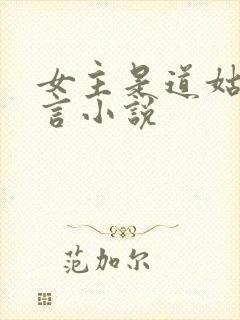 女主是道姑
言小说
范加尔